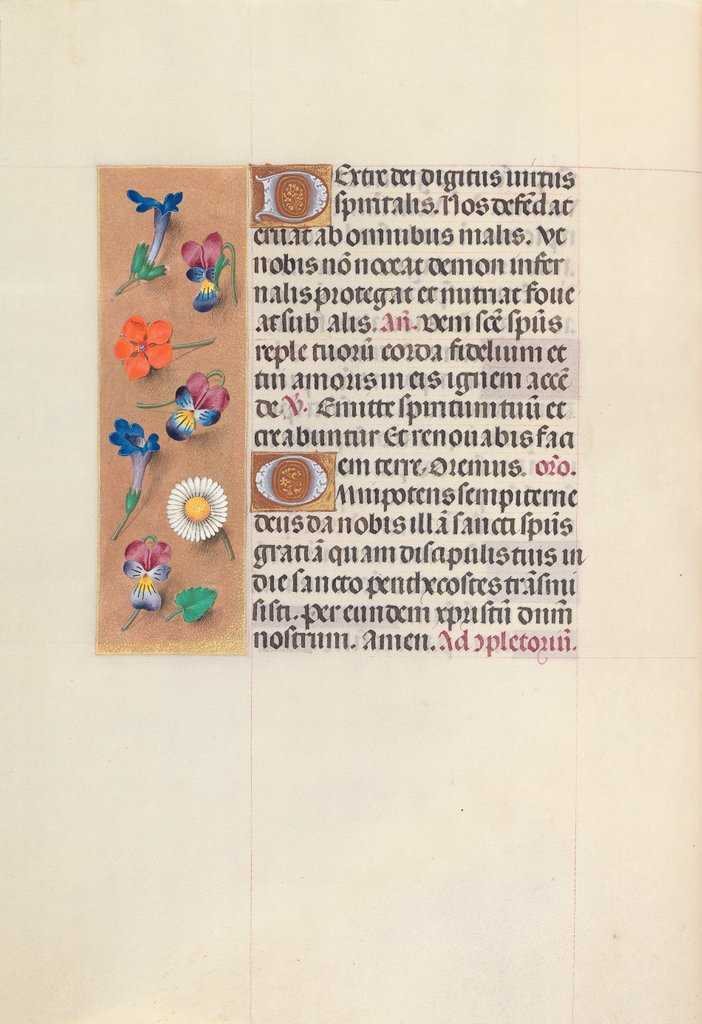 Dextre dei digitus uirtus
spiritalis. Nos defēdat
eruat ab omnibus malis. Vt
nobis nō noceat demon infer
nalis protegat et nutriat foue
at sub alis. Añ. Veni scē spūs
reple tuorū corda fidelium et
tui amoris in eis ignem accē
de. ℣. Emitte spiritum tuū et
creabuntur Et renouabis faci
em terre. Oremus. oro̅.
Omnipotens sempiterne
deus da nobis illā sancti spūs
gratiā quam discipulis tuis in
die sancto penthecostes trāsmi
sisti. per eundem xp̄ristū dnm̄
nostrum. Amen. Ad ↄpletoriū.